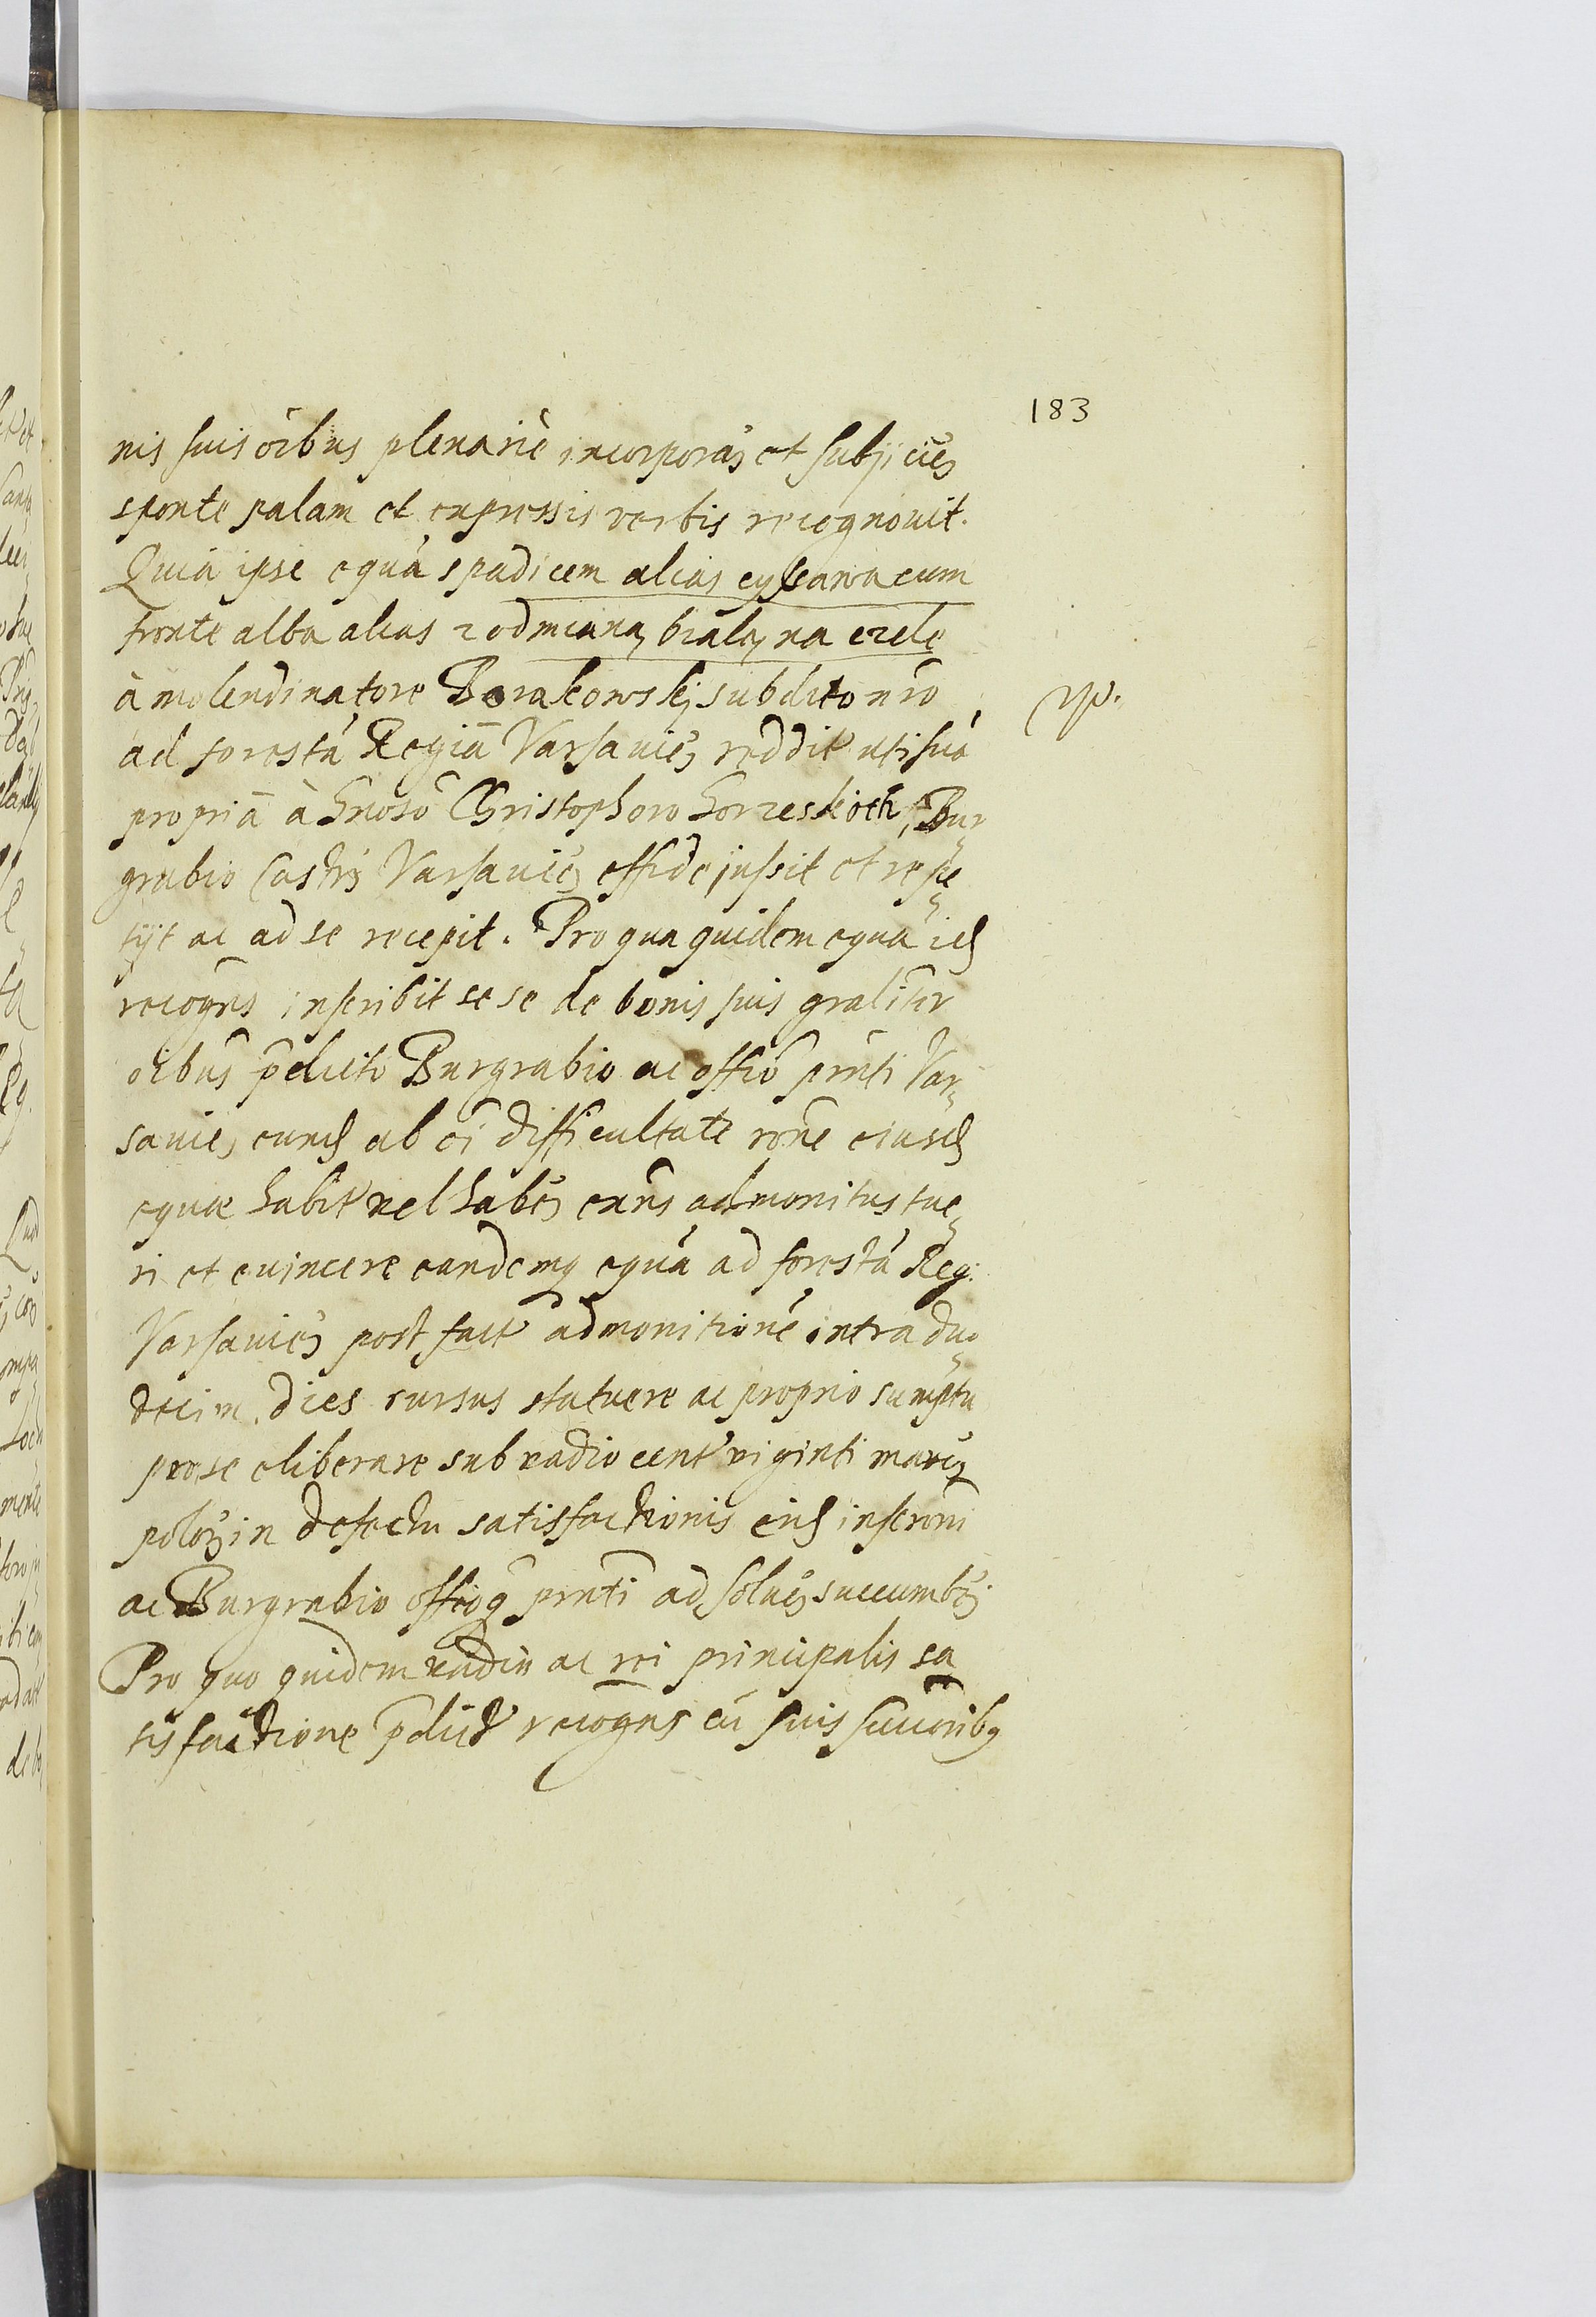 183
nis suis oĩbus plenariè incorporãs et subjicie͂s
sponte palam et expressis verbis recognovit.
Quia ipse equã spadicem alias cysawa cum
fronte alba alias z odmianą białą na czele
à molendinatore Borakowskj subdito nr̃o
ad forestã Regiã Varsavien̄ reddit͛ uti suã
propriã à Gnoso Christophoro Gorzeskoch Bur
grabio Castri Varsavien̄ effide jussit et repe
tijt ac ad se recepit. Pro qua quidem equa id
recogn̄s inscribit se se de bonis suis gralit̄er
oĩbus p̄dicto Burgrabio ac offiõ prnti Var
savien̄ eund ab oĩ difficultate rõne eiusd
equæ habit͛ vel haben̄ exn̄s admonitus tue
ri et evincere eandemq equã ad forestã Reg:
Varsavien̄ post fact͛ admonitionẽ intra duo
decim dies rursus statuere ac proprio sumptu
pro se eliberare sub vadio cent͛ viginti marcz
poloz in defectu satisfactionis eiusd inscroni
ac Burgrabio offioq prnti ad soluen̄ succumbẽ.
Pro quo quidem vadio ac rei principalis sa
tisfactione p̄dict͛ recogn̄s cũ suis succoribq